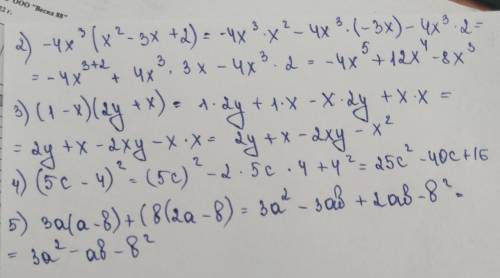 ООО "Весна 88"
22 г.
2) -4x³(x² - 3x + 2) = -4x³·x² - 4x³·(-3x) - 4x³·2 =
= -4x³⁺² + 4x³·3x - 4x³·2 = -4x⁵ + 12x⁴ - 8x³
3) (1 - x)(2y + x) = 1·2y + 1·x - x·2y + x·x =
= 2y + x - 2xy - x·x = 2y + x - 2xy - x²
4) (5c - 4)² = (5c)² - 2·5c·4 + 4² = 25c² - 40c + 16
5) 3a(a - 8) + (8(2a - 8) = 3a² - 3ab + 2ab - 8² =
= 3a² - ab - 8²